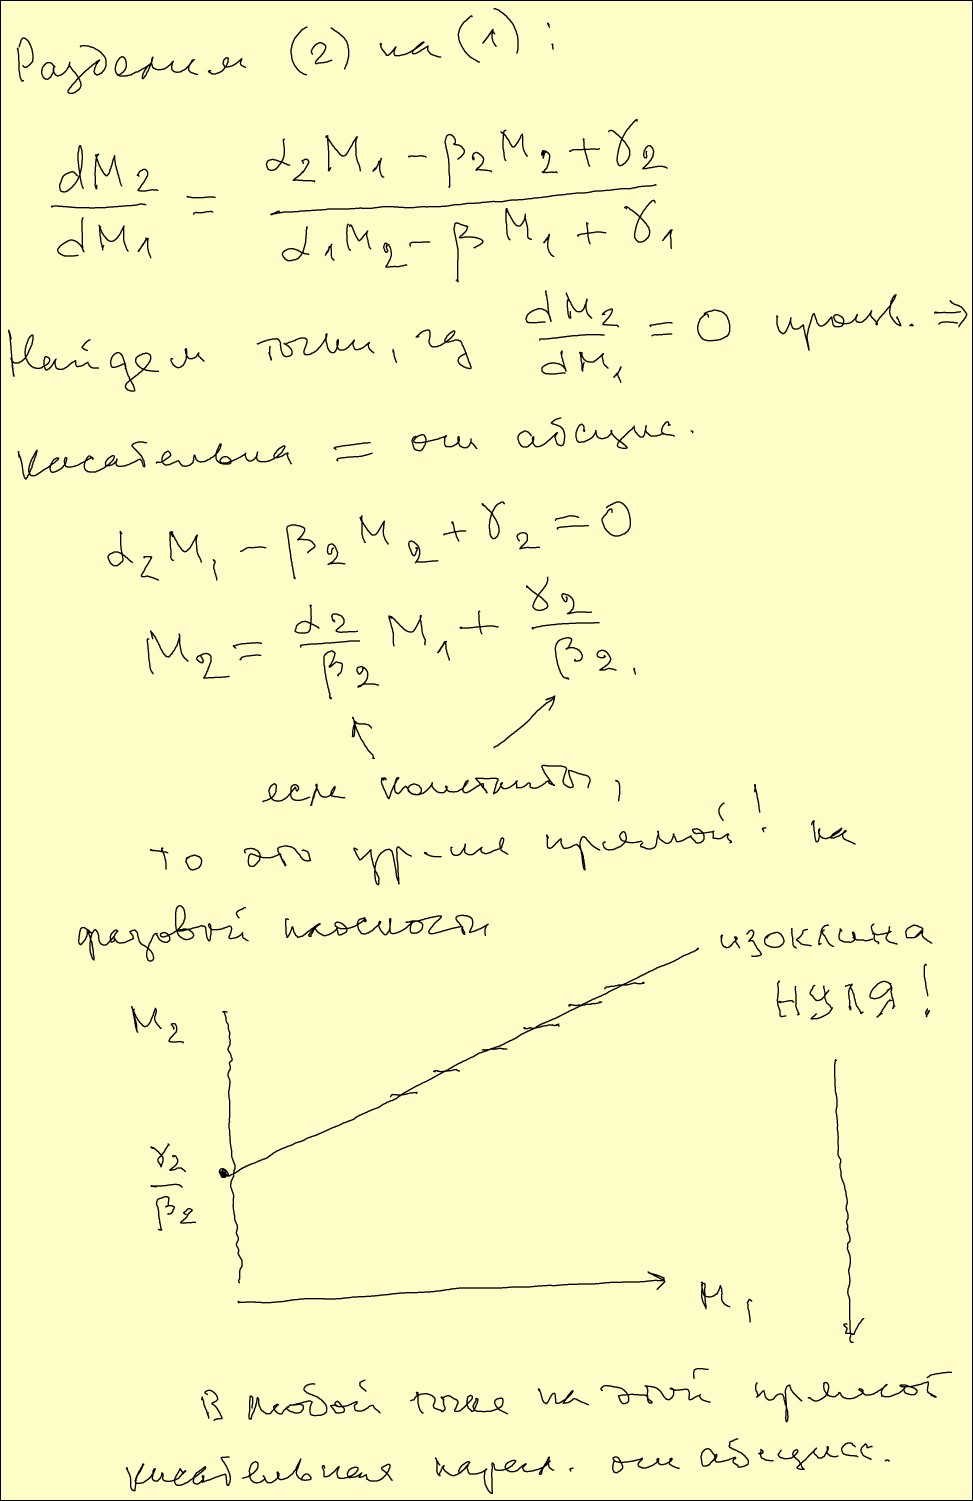 Разделим (2) на (1):
dM₂/dM₁ = (α₂M₁ - β₂M₂ + γ₂)/(α₁M₂ - βM₁ + γ₁)
Найдем точки, гд dM₂/dM₁ = 0 произв. ⇒
касательна = оси абсцис.
α₂M₁ - β₂M₂ + γ₂ = 0
M₂ = α₂/β₂ M₁ + γ₂/β₂.
если константы,
то это ур-ние прямой! на
фазовой плоскости
изоклина
НУЛЯ!
M₂
γ₂/β₂
M₁
В любой точке на этой прямой
касательная парал. оси абсцисс.